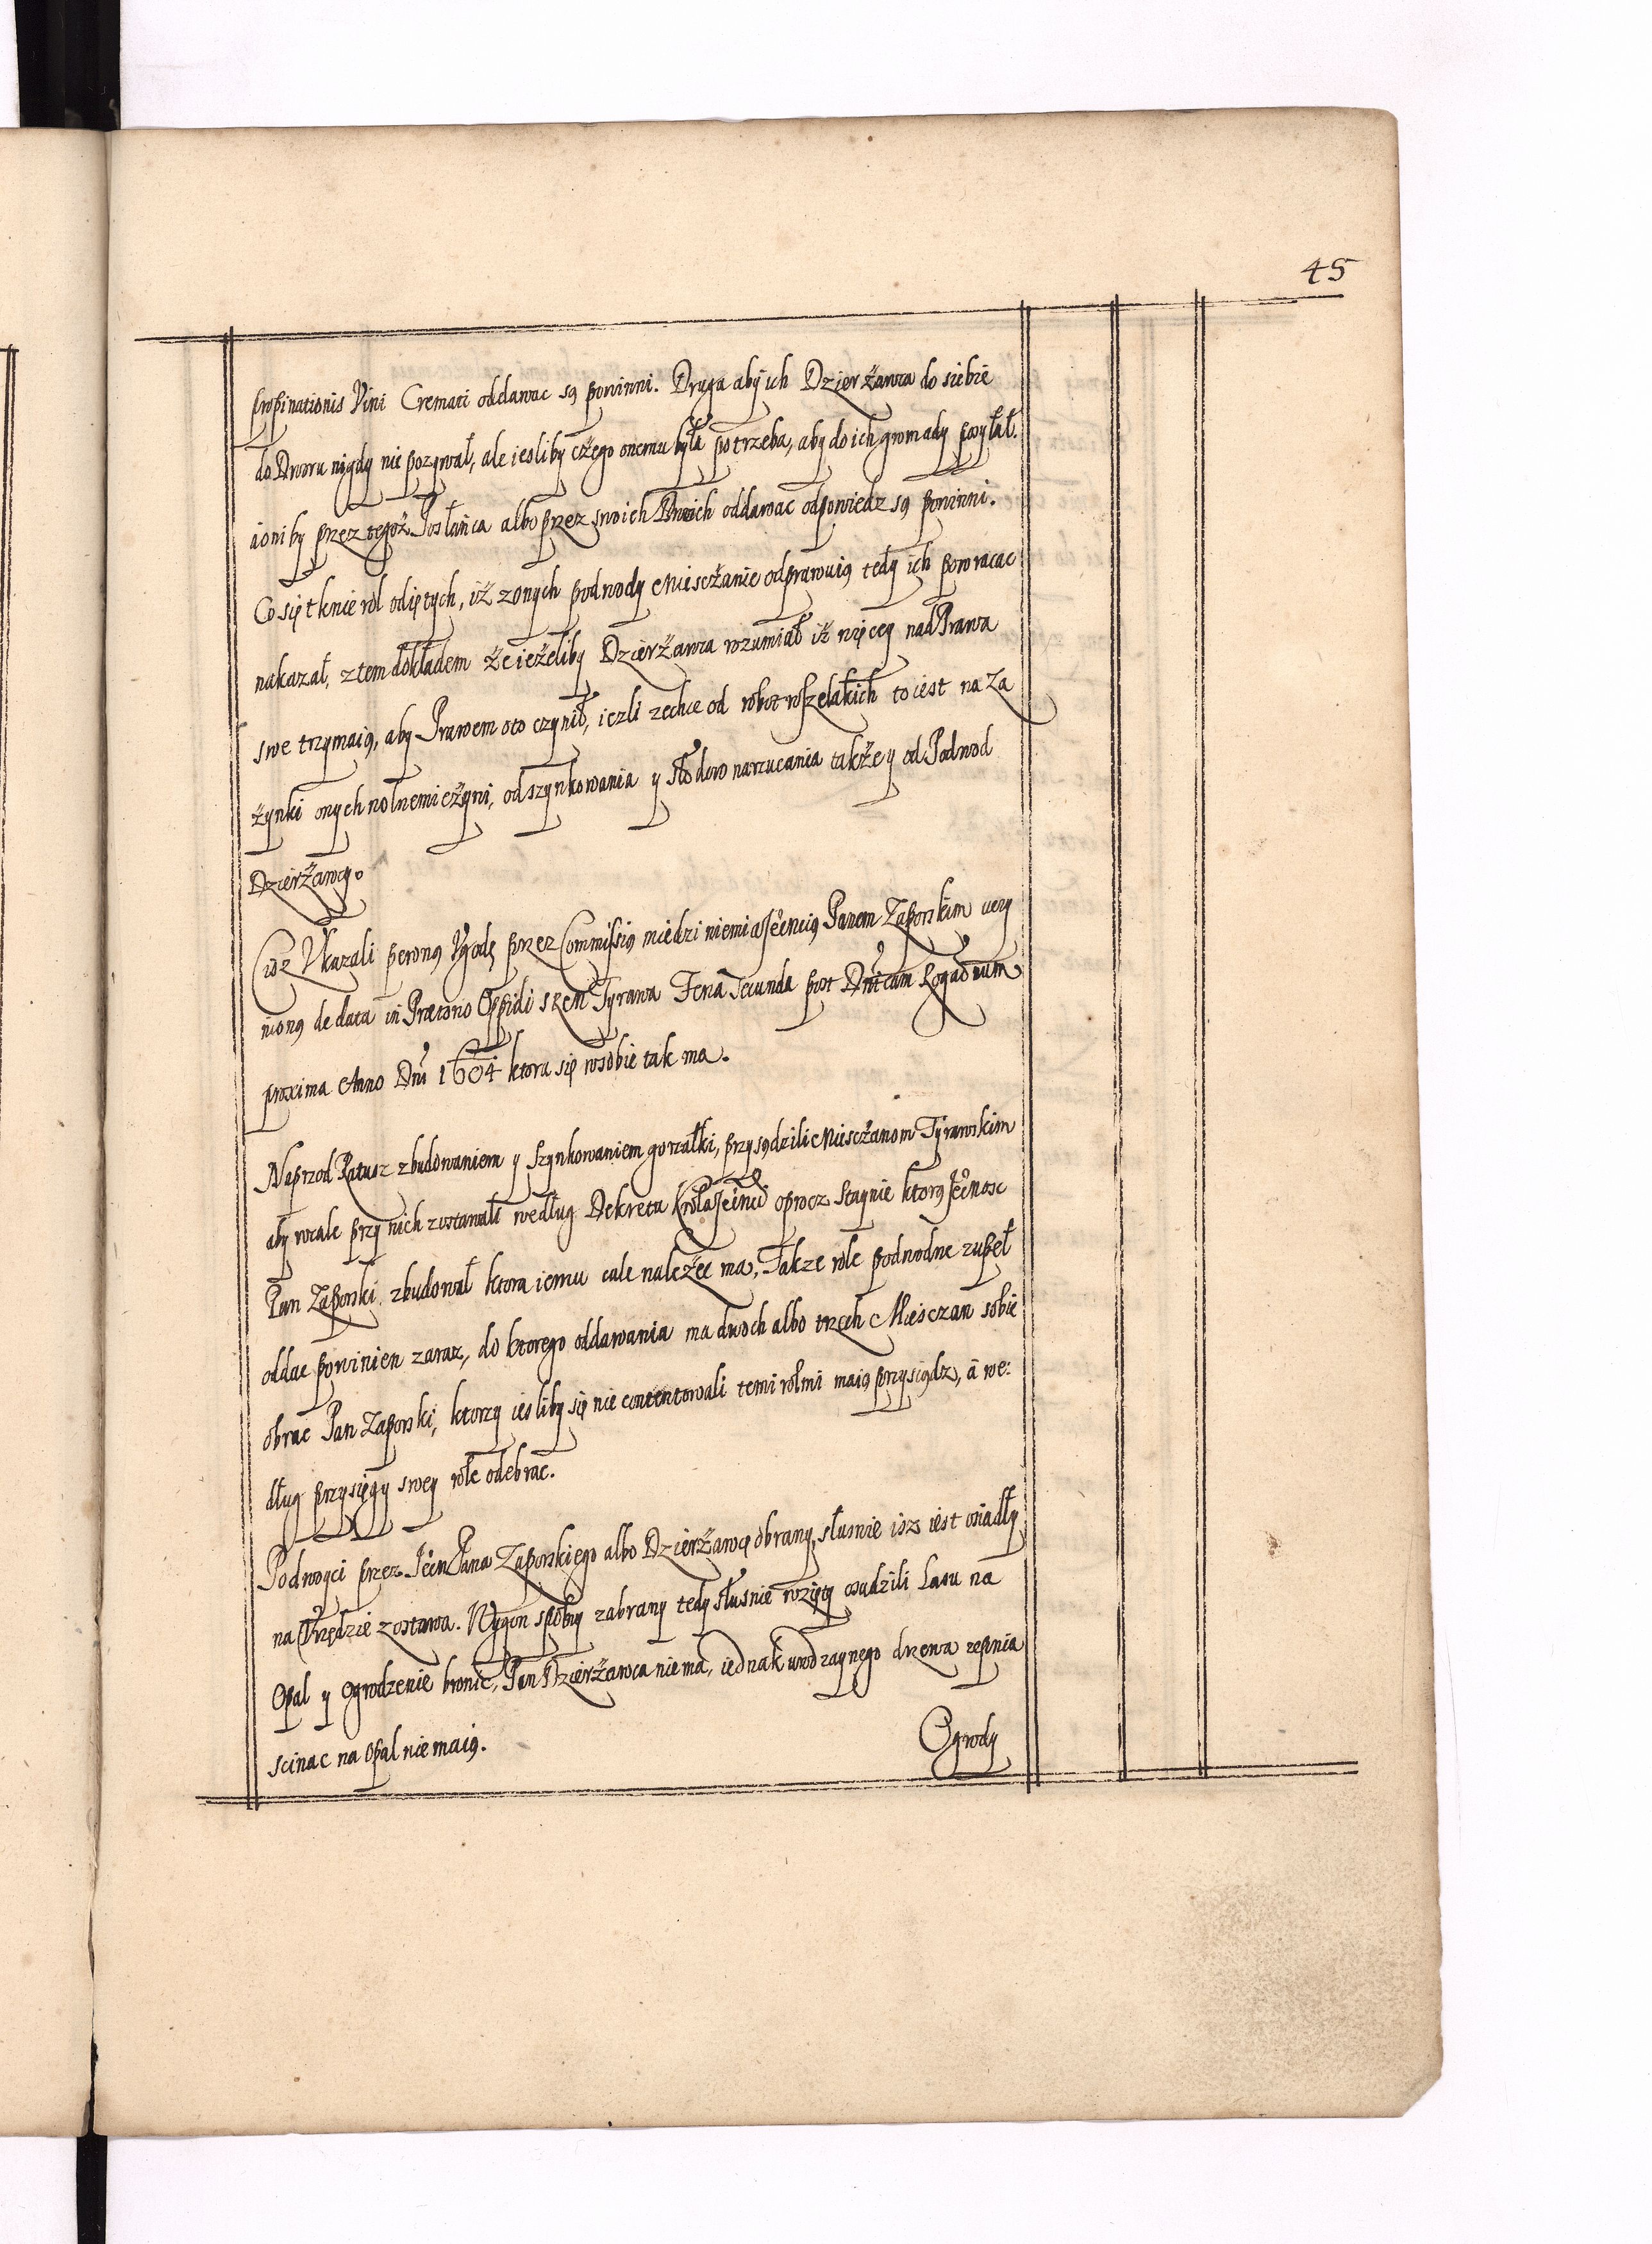 45
propinationis Vini Cremati oddawac są powinni. Druga aby ich Dzierżawca do siebie
do Dworu nigdy nie pozywał, ale iesliby czego onemu była potrzeba, aby do ich gromady posyłał.
a oni by przez tegoż Posłańca albo przez swoich Braci oddawac odpowiedz są powinni.
Co się tknie rol odiętych, iż z onych podwody Miesczanie odprawuią tedy ich powracac
nakazał, z tem dokładem że ieżeliby Dzierżawca rozumiał iż więcey nad Prawa
swe trzymaią, aby Prawem oto czynił, iezli zechce od robot wszelakich to iest na Za
żynki onych wolnemi czyni, od szynkowania y słodow narzucania także y od Podwod
Dzierżawcy.
Ciż Vkazali pewną Vgodę przez Commissią miedzi niemi a Panem Zaporskim uczy
nioną de data in Prætorio Oppidi Tyrawa Feria Secunda post Dnicam Rogationum
proxima Anno Dni 1604 ktora się w sobie tak ma.
Naprzod Ratusz z budowaniem y szynkowaniem gorzałki, przysądzili Miesczanom Tyrawskim
aby wcale przy nich zostawał według Dekretu Krola Jeimci oprocz Staynie ktorą Jeomosc
Pan Zaporski zbudował ktora iemu cale należec ma, Takze role podwodne zupeł
oddac powinien zaraz, do ktorego oddawania ma dwoch albo trzech Miesczan sobie
obrac Pan Zaporski, ktorzy iesliby się nie contentowali temi rolmi maią przysiądz, a we:
dług przysięgy swey role odebrac.
Podwoyci przez Jeom Pana Zaporskiego albo Dzierżawcę obrany, słusnie isz iest osiadły
na Vrzędzie zostawa. Wygon spolny zabrany tedy słusnie wzięty osudzili Lasu na
Opal y Ogrodzenie bronic, Pan Dzierżawca nie ma, iednak urodzaynego drzewa
scinac na Opal nie maią.
Ogrody